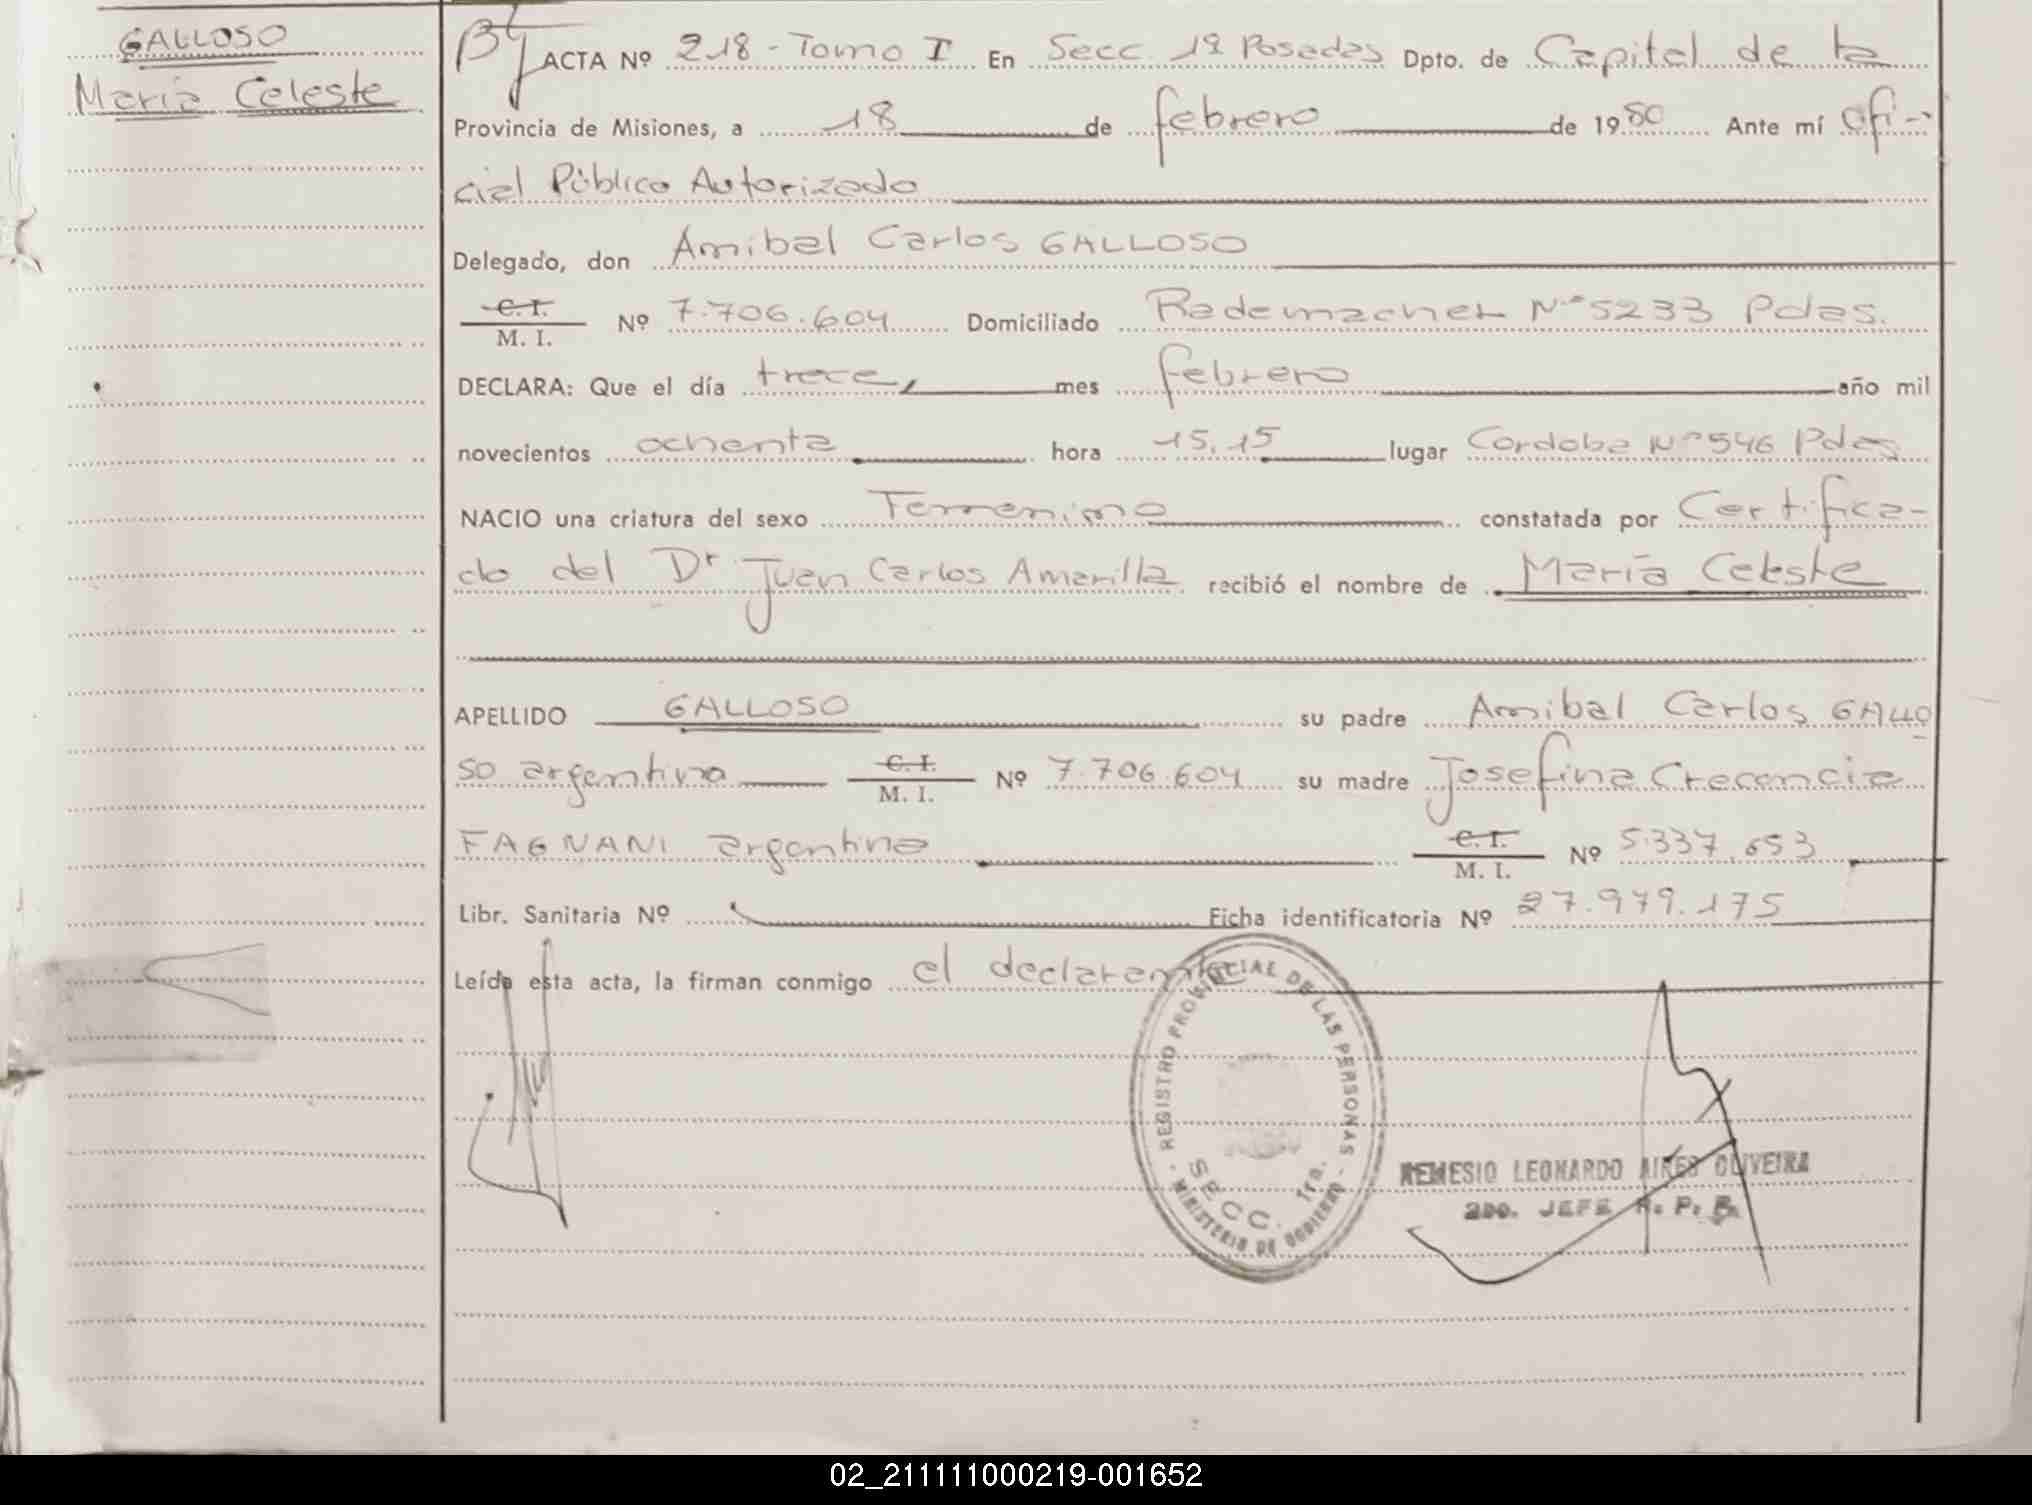 GALLOSO
María Celeste
ACTA Nº 218 - Tomo I En Secc. 1ª Posadas Dpto. de Capital de la
Provincia de Misiones, a 18 de febrero de 1980 Ante mí ofi-
cial Público Autorizado
Delegado, don Anibal Carlos GALLOSO
C. I.
M. I.
Nº 7.706.604 Domiciliado Rademacher Nº 5233 Pdas.
DECLARA: Que el día trece, mes febrero año mil
novecientos ochenta hora 15,15 lugar Cordoba Nº 546 Pdas
NACIO una criatura del sexo Femenino constatada por Certifica-
do del Dr Juan Carlos Amarilla recibió el nombre de María Celeste
APELLIDO GALLOSO su padre Anibal Carlos GALLO
so argentino C. I. M. I. Nº 7.706.604 su madre Josefina Crecencia
FAGNANI argentina C. I. M. I. Nº 5.337.653
Libr. Sanitaria Nº Ficha identificatoria Nº 27.979.175
Leída esta acta, la firman conmigo el declarante
REGISTRO PROVINCIAL DE LAS PERSONAS
SECC. 1ra.
MINISTERIO DE GOBIERNO
NEMESIO LEONARDO AIRES OLIVEIRA
2DO. JEFE R. P. P.
02_211111000219-001652